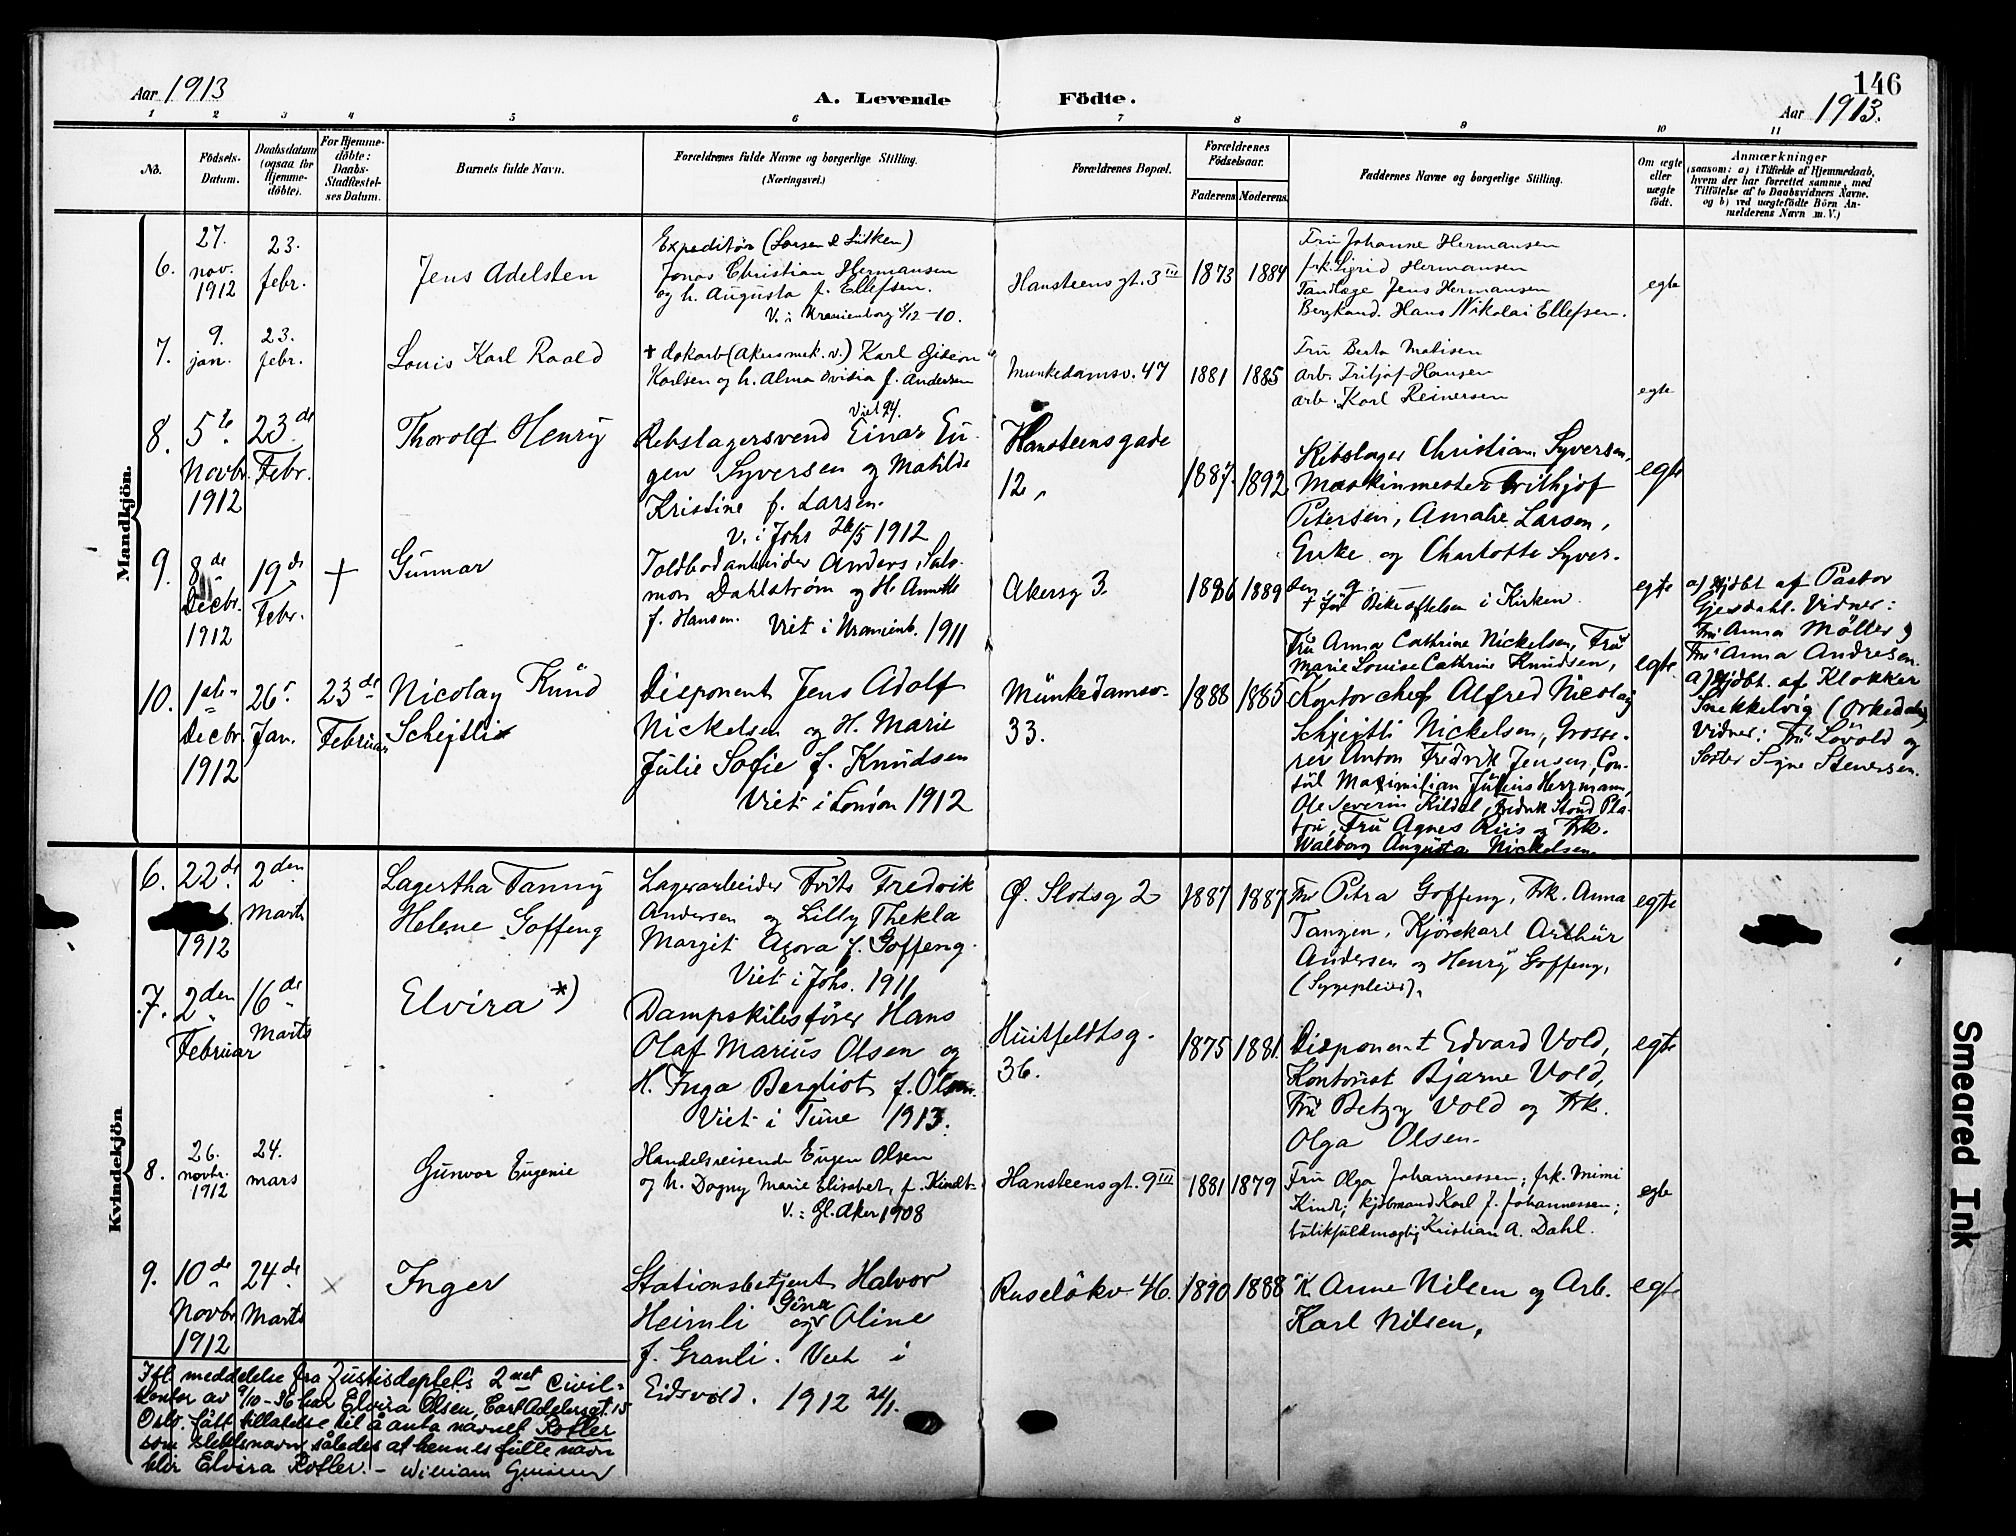 146
Aar 1913
A. Levende Födte.
Aar 1913.
1 2 3 4 5 6 7 8 9 10 11
No.
Födsels-
Datum.
Daabsdatum
(ogsaa for
Hjemme-
döbte).
For Hjemme-
döbte:
Daabs-
Stadfæstel-
ses Datum.
Barnets fulde Navn.
Forældrenes fulde Navne og borgerlige Stilling.
(Næringsvei.)
Forældrenes Bopæl.
Forældrenes
Födselsaar.
Faderens Moderens
Faddernes Navne og borgerlige Stilling.
Om ægte
eller
uægte
födt.
Anmærkninger
(saasom: a) i Tilfælde af Hjemmedaab,
hvem der har forrettet samme, med
Tilföielse af to Daabsvidners Navne,
og b) ved uægtefödte Börn An-
melderens Navn m. V.)
Mandkjön.
6.
27.
nov.
1912
23.
febr.
Jens Adelsten
Expeditör (Larsen & Lütken)
Jonas Christian Hermansen
og h. Augusta f. Ellefsen.
V. i Uranienborg 4/12-10.
Hansteensgt. 3 III
1873 1884
Fru Johanne Hermansen
frk. Sigrid Hermansen
Tandlæge Jens Hermansen
Bergkand. Hans Nikolai Ellefsen.
egte
7.
9.
jan.
23.
febr.
Louis Karl Roald
+ dokarb (Akers mek. v.) Karl Gideon
Karlsen og h. Alma Ovidia f. Andersen
Viet 94.
Munkedamsv. 47
1881 1885
Fru Berta Matisen
arb. Fritjof Hansen
arb. Karl Reinersen
egte
8.
5te
Novbr.
1912
23de
Febr.
Thorolf Henry
Rebslagersvend Einar Eu-
gen Syversen og Matilde
Kristine f. Larsen.
V. i Johs 26/5 1912
Hansteensgade
12,
1887. 1892
Rebslager Christian Syversen,
Maskinmester Frithjof
Petersen, Amalie Larsen,
Enke og Charlotte Syver-
sen, g.
egte
9.
8de
Decbr.
1912
19de
Febr.
+
Gunnar
Toldbodarbeider Anders Salo-
mon Dahlström og H. Annette
f. Hansen. Viet i Uranienb. 1911
Akersg 3.
1886 1889
+ før Bekræftelsen i Kirken.
egte
a) hjdbt af Pastor
Gjesdahl. Vidner:
Fru Anna Möller og
Fru Anna Andresen.
10.
1ste
Decbr.
1912
26'
Jan.
23de
Februar
Nicolay Knud
Schejtli
Disponent Jens Adolf
Nickelsen og H. Marie
Julie Sofie f. Knudsen
Viet i London 1912
Munkedamsv-
33.
1888 1885
Fru Anna Cathrine Nickelsen, Fru
Marie Louise Cathrine Knudsen,
Kontorchef Alfred Nicolay
Schjeitli Nickelsen, Grosse-
rer Anton Fredrik Jensen, Con-
sul Maximilian Julius Herzmann,
Ole Severin Kildal, Fredrik Stoud Pla-
tou, Fru Agnes Riis og Frk.
Walborg Augusta Nickelsen
egte.
a) hjdbt. af Klokker
Snekkelvig (Orkedalen)
Vidner: Fru Lövold og
Söster Signe Stenersen.
Kvindekjön
6.
22de
1912
2den
Marts
Lagertha Fanny
Helene Goffeng
Lagerarbeider Frits Fredrik
Andersen og Lilly Thekla
Margit Agora f. Goffeng.
Viet i Johs. 1911
Ø. Slotsg 2
1887 1887
Fru Petra Goffeng, Frk. Anna
Tangen, Kjörekarl Arthur
Andersen og Henry Goffeng,
(Sygepleier).
egte
7.
2den
Februar
16de
Marts
Elvira *)
Dampskibsförer Hans
Olaf Marius Olsen og
H. Inga Bergliot f. Olsen.
Viet i Tune 1913.
Huitfeldtsg.
36.
1875 1881.
Disponent Edvard Vold,
Kontorist Bjarne Vold,
Fru Betzy Vold og Frk.
Olga Olsen.
egte
8.
26.
novbr.
1912
24.
mars
Gunvor Eugenie
Handelsreisende Eugen Olsen
og h. Dagny Marie Elisabet, f. Kindt-
V. i Gl. Aker 1908
Hansteensgt. 9 III
1881 1879
Fru Olga Johannessen; frk. Mimi
Kindt; kjöbmand Karl J. Johannessen;
butikfuldmægtig Kristian A. Dahl.
egte
9.
10de
Novbr
1912
24de
Marts
x
Inger
Stationsbetjent Halvor
Heimli og Gina Oline
f. Granli. Viet i
Eidsvold. 1912 21/1.
Ruselökv 46.
1890 1888
K. Anne Nilsen og Arb.
Karl Nilsen,
egte
Ifl. meddelelse fra Justisdeptets 2net Civil-
kontor av 9/10-36 har Elvira Olsen, Carl Adelersgt. 15
Oslo, fått tillatelse til å anta navnet Rofler
som slektsnavn således at hennes fulle navn
blir Elvira Rofler. -
Smeared Ink